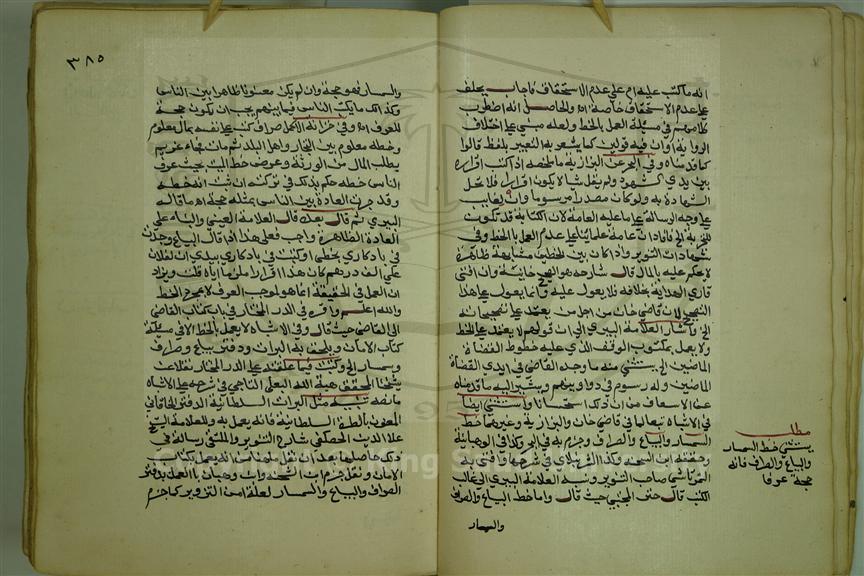 انه ما كتب عليه ام على عدم الاستحقاق فاجاب يحلف
على عدم الاستحقاق خاصة اه والحاصل انه اضطرب
كلامهم في مسئلة العمل بالخط ولعله مبني على اختلاف
الرواية او ان فيه قولين كما يشعر به التعبير بلفظ قالوا
كما قدمناه وفي البحر عن البزازية ما ملخصه اذا كتب اقراره
بين يدي الشهود ولم يقل شيا لا يكون اقرارا فلا تحل
الشهادة به ولو كان مصدرا مرسوما وان لغايب
على وجه الرسالة على ما عليه العامة لان الكتابة قد تكون
للتجربة الخ فافاد ان عامة علمائنا على عدم العمل بالخط وفي
شهادات التنوير واذا كان بين الخطين مشابهة ظاهرة
لا يحكم عليه بالمال قال شارحه هو الصحيح خانية وان افتى
قاري الهداية بخلافه فلا يعول عليه وانما يعول على هذا
التصحيح لان قاضي خان من اجل من يعتمد على تصحيحاته
الخ واشار العلامة البيري الى ان قولهم لا يعتمد على الخط
ولا يعمل بمكتوب الوقف الذي عليه خطوط القضاة
الماضين الخ يستثنى منه ما وجده القاضي في ايدي القضاة
الماضين وله رسوم في دواوينهم ويشير اليه ما قدمناه
عن الاسعاف من ان ذلك استحسانا واستثنى ايضا
في الاشباه تبعا لما في قاضي خان والبزازية وغيرهما خط
السمسار والبياع والصراف وجزم به في البحر وكذا في الوهبانية
وحققه ابن الشحنة وكذا الشرنبلالي في شرحها وافتى به
التمرتاشي صاحب التنوير ونسبه العلامة البيري الى غالب
الكتب قال حتى المجتبى حيث قال واما خط البياع والصراف
والسمار
مطلب
يستثنى خط السمسار
والبياع والصراف فانه
حجة عرفا
٣٨٥
والسمسار فهو حجة وان لم يكن معنونا ظاهرا بين الناس
وكذلك ما يكتب الناس فيما بينهم يجب ان يكون حجة
للعرف اه وفي خزانة الاكمل صراف كتب على نفسه بمال معلوم
وخطه معلوم بين التجار واهل البلد ثم مات فجاء غريم
يطلب المال من الورثة وعرض خط الميت بحيث عرف
الناس خطه حكم بذلك في تركته ان ثبت انه خطه
وقد جرت العادة بين الناس بمثله حجة اه ما قاله
البيري ثم قال بعده قال العلامة العيني والبناء على
العادة الظاهرة واجب فعلى هذا اذا قال البياع وجدت
في يادكاري بخطي او كتبت في يادكاري بيدي ان لفلان
علي الف درهم كان هذا اقرارا ملزما اياه قلت ويزاد
ان العمل في الحقيقة انما هو لموجب العرف لا بمجرد الخط
والله اعلم واقره في الدر المختار في باب كتاب القاضي
الى القاضي حيث قال وفي الاشباه لا يعمل بالخط الا في مسئلة
كتاب الامان ويلحق به البراآت ودفتر بياع وصراف
وسمسار الخ وكتبت فيما علقته على الدر المختار نقلا عن
شيخنا المحقق هبة الله البعلي التاجي في شرحه على الاشباه
ما نصه تنبيه مثل البراءة السلطانية الدفتر الخاقاني
المعنون بالطرة السلطانية فانه يعمل به وللعلامة الشيخ
علا الدين الحصكفي شارح التنوير والملتقى رسالة في
ذلك حاصلها بعد ان نقل ما هنا من انه يعمل بكتاب
الامان ونقل جزم ابن الشحنة وابن وهبان بالعمل بدفتر
الصراف والبياع والسمسار لعلة امن التزوير كما جزم